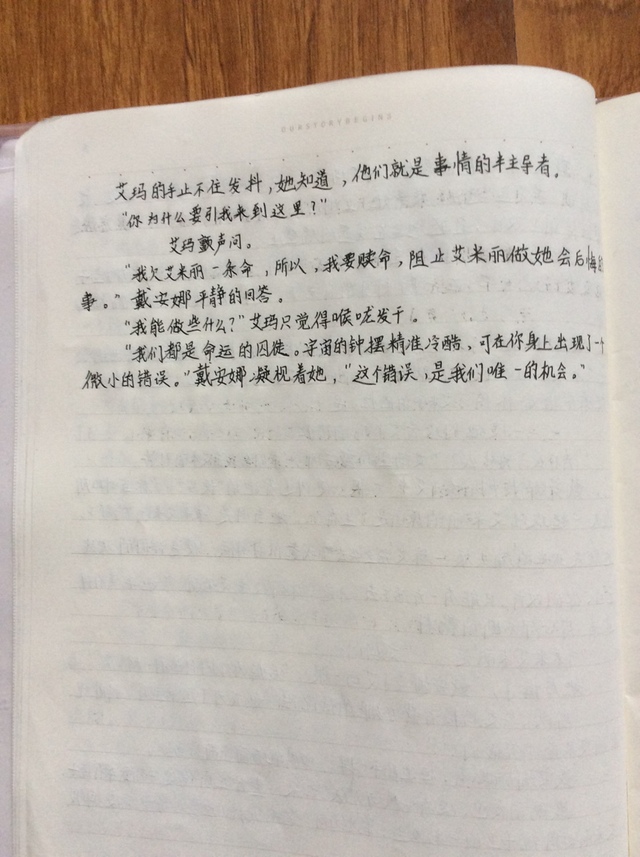 艾玛的手止不住发抖，她知道，他们就是事情的半主导者。
"你为什么要引我来到这里？"
艾玛颤声问。
"我欠艾米丽一条命，所以，我要赎命，阻止艾米丽做她会后悔的
事。"戴安娜平静的回答。
"我能做些什么？"艾玛只觉得喉咙发干。
"我们都是命运的囚徒。宇宙的钟摆精准冷酷，可在你身上出现了一个
微小的错误。"戴安娜凝视着她，"这个错误，是我们唯一的机会。"